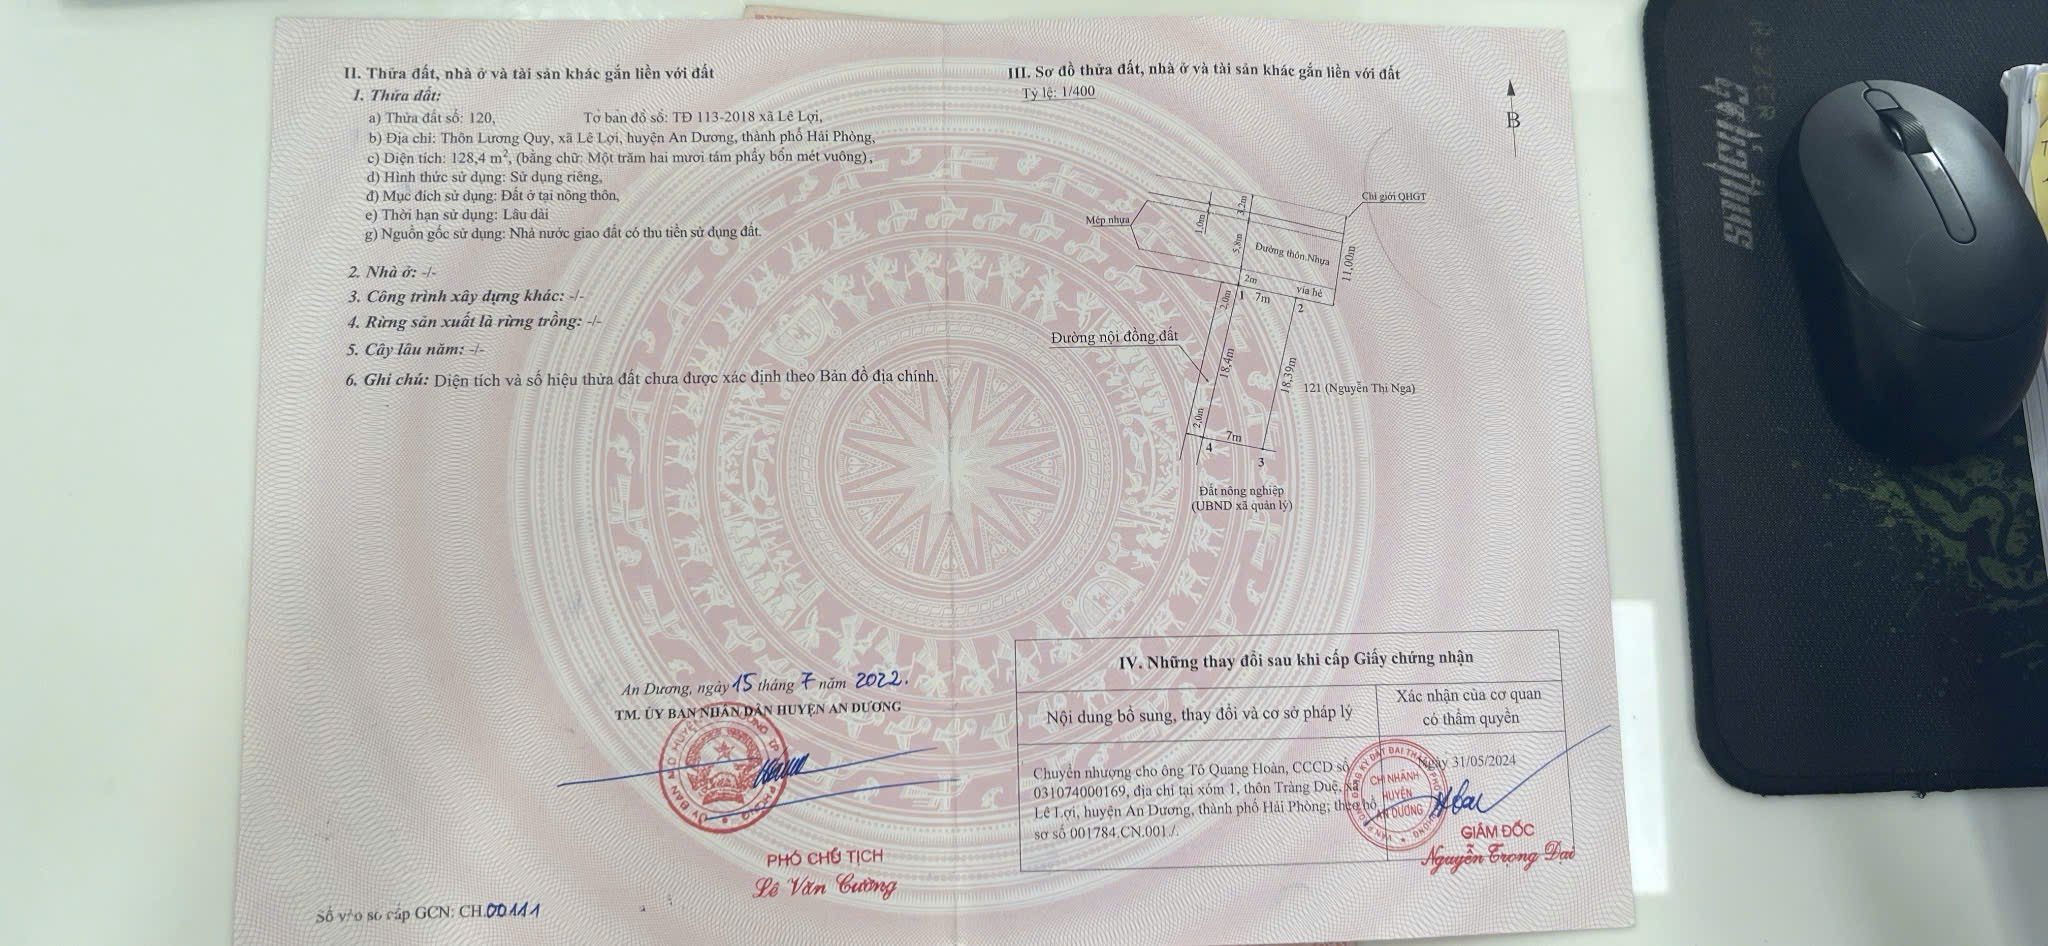 II. Thửa đất, nhà ở và tài sản khác gắn liền với đất
1. Thửa đất:
a) Thửa đất số: 120, Tờ bản đồ số: TĐ 113-2018 xã Lê Lợi,
b) Địa chỉ: Thôn Lương Quy, xã Lê Lợi, huyện An Dương, thành phố Hải Phòng,
c) Diện tích: 128,4 m², (bằng chữ: Một trăm hai mươi tám phẩy bốn mét vuông),
d) Hình thức sử dụng: Sử dụng riêng,
đ) Mục đích sử dụng: Đất ở tại nông thôn,
e) Thời hạn sử dụng: Lâu dài
g) Nguồn gốc sử dụng: Nhà nước giao đất có thu tiền sử dụng đất.
2. Nhà ở: -/-
3. Công trình xây dựng khác: -/-
4. Rừng sản xuất là rừng trồng: -/-
5. Cây lâu năm: -/-
6. Ghi chú: Diện tích và số hiệu thửa đất chưa được xác định theo Bản đồ địa chính.
An Dương, ngày 15 tháng 7 năm 2022.
TM. ỦY BAN NHÂN DÂN HUYỆN AN DƯƠNG
PHÓ CHỦ TỊCH
Lê Văn Cường
Số vào sổ cấp GCN: CH.00111
III. Sơ đồ thửa đất, nhà ở và tài sản khác gắn liền với đất
Tỷ lệ: 1/400
B
Chỉ giới QHGT
Mép nhựa
1,0m
3,2m
5,8m
Đường thôn.Nhựa
11,00m
2m
vỉa hè
2,0m
1
7m
2
Đường nội đồng.đất
18,4m
18,39m
121 (Nguyễn Thị Nga)
2,0m
7m
4
3
Đất nông nghiệp
(UBND xã quản lý)
IV. Những thay đổi sau khi cấp Giấy chứng nhận
Nội dung bổ sung, thay đổi và cơ sở pháp lý
Xác nhận của cơ quan
có thẩm quyền
Chuyển nhượng cho ông Tô Quang Hoàn, CCCD số
031074000169, địa chỉ tại xóm 1, thôn Tràng Duệ, xã
Lê Lợi, huyện An Dương, thành phố Hải Phòng; theo hồ
sơ số 001784.CN.001./.
Ngày 31/05/2024
CHI NHÁNH
HUYỆN
AN DƯƠNG
GIÁM ĐỐC
Nguyễn Trọng Đại